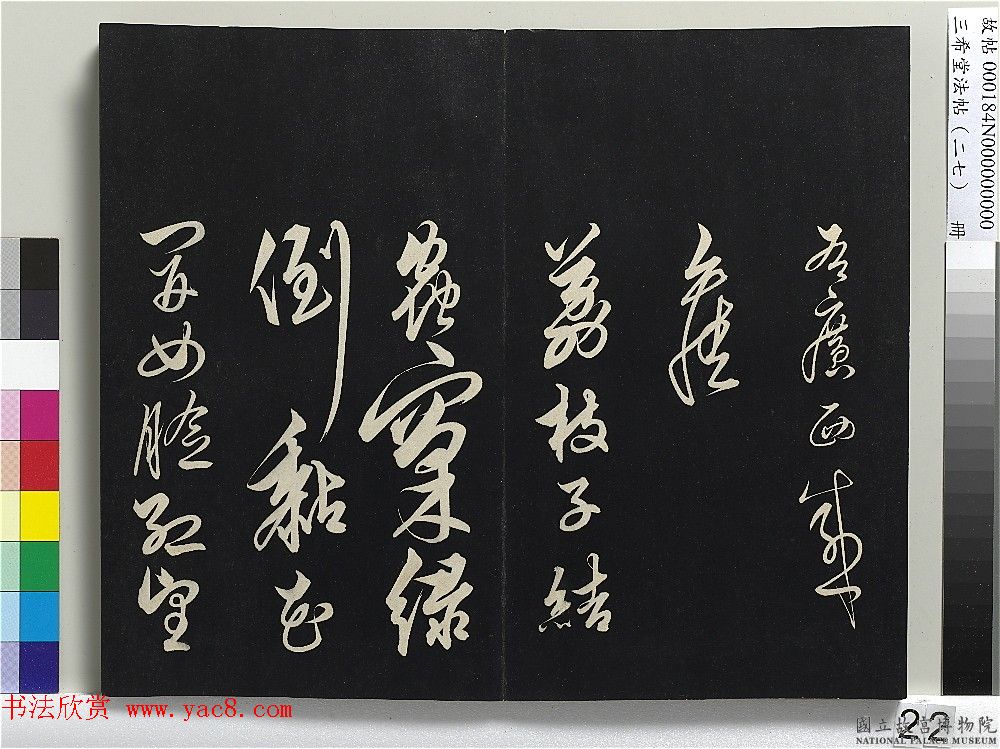 故帖000184N000000000
三希堂法帖(二七) 冊
廣西
荔枝子結
蟲窠綠
倒黏花
開女臉紅望
书法欣赏 www.yac8.com
22
國立故宮博物院
NATIONAL PALACE MUSEUM